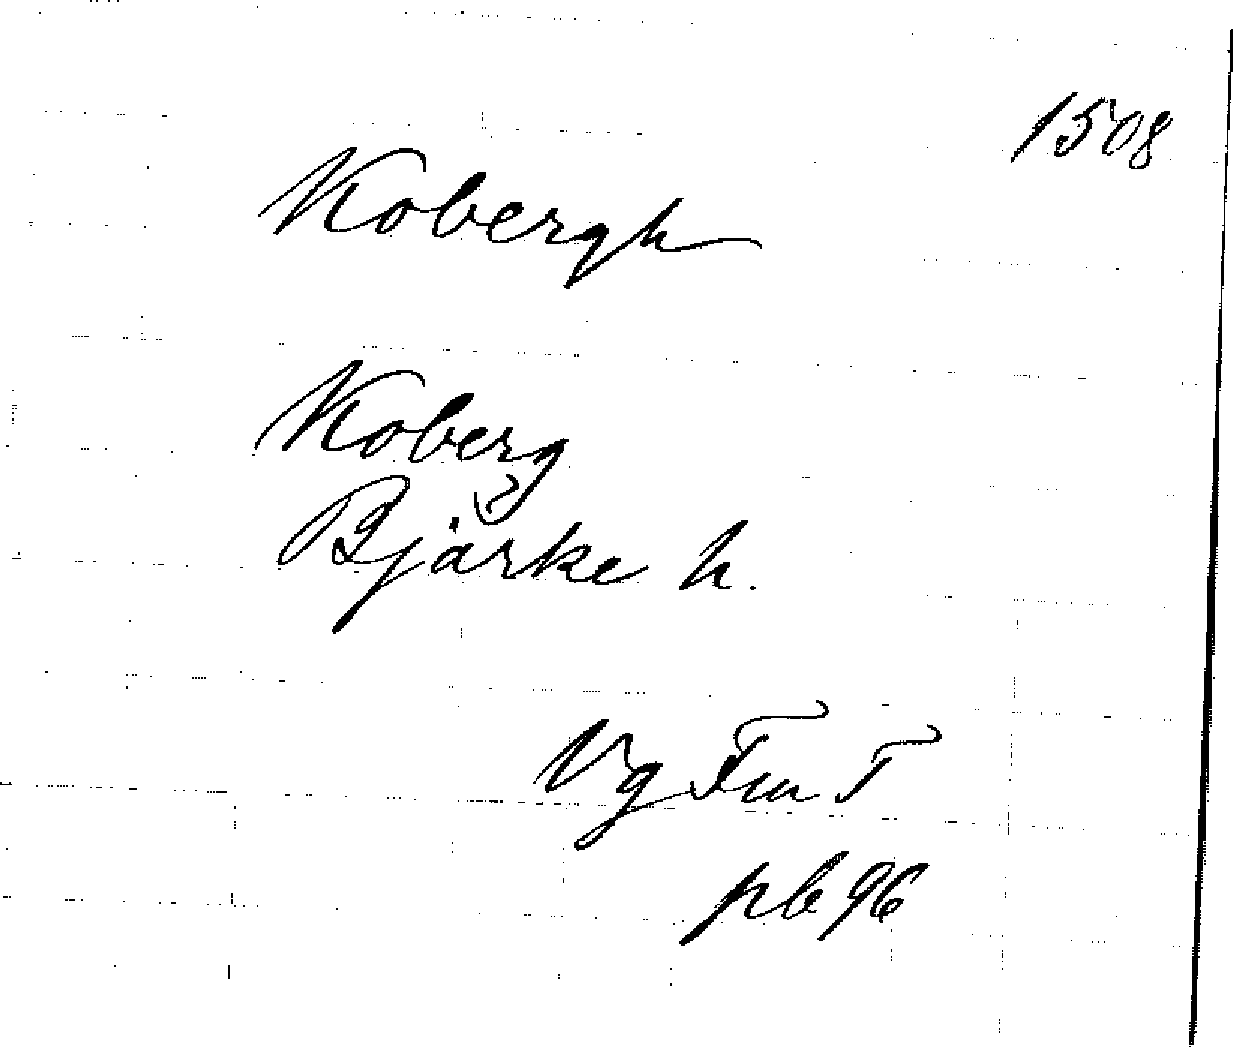 1508
Kobergh
Koberg
Bjärke h.
Vg Fm T
pb 96